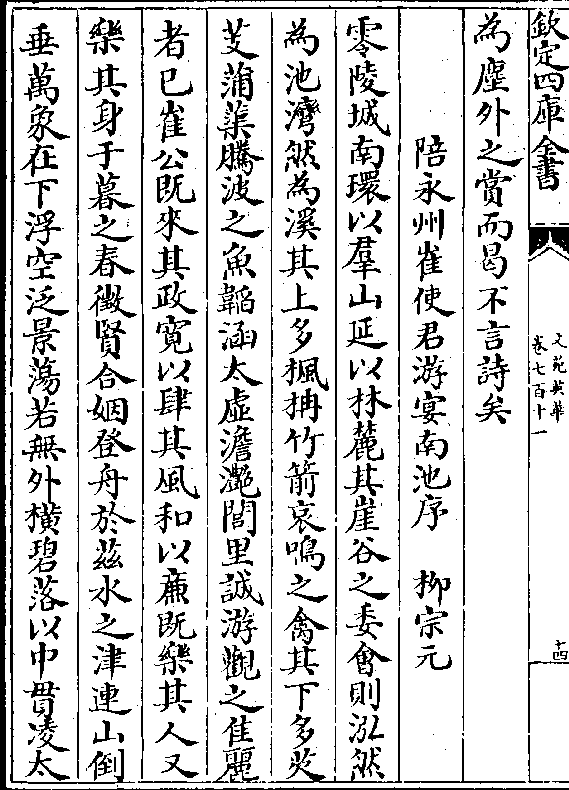 欽定四庫全書
文苑英華
卷七百十一
十四
為塵外之賞而曷不言詩矣
陪永州崔使君游宴南池序　柳宗元
零陵城南環以羣山延以林麓其崖谷之委會則泓然
為池灣然為溪其上多楓柟竹箭哀鳴之禽其下多芡
芰蒲蕖騰波之魚韜涵太虛澹灔閭里誠游觀之佳麗
者已崔公既來其政寛以肆其風和以廉既樂其人又
樂其身于暮之春徵賢合姻登舟於兹水之津連山倒
垂萬象在下浮空泛景蕩若無外橫碧落以中貫凌太